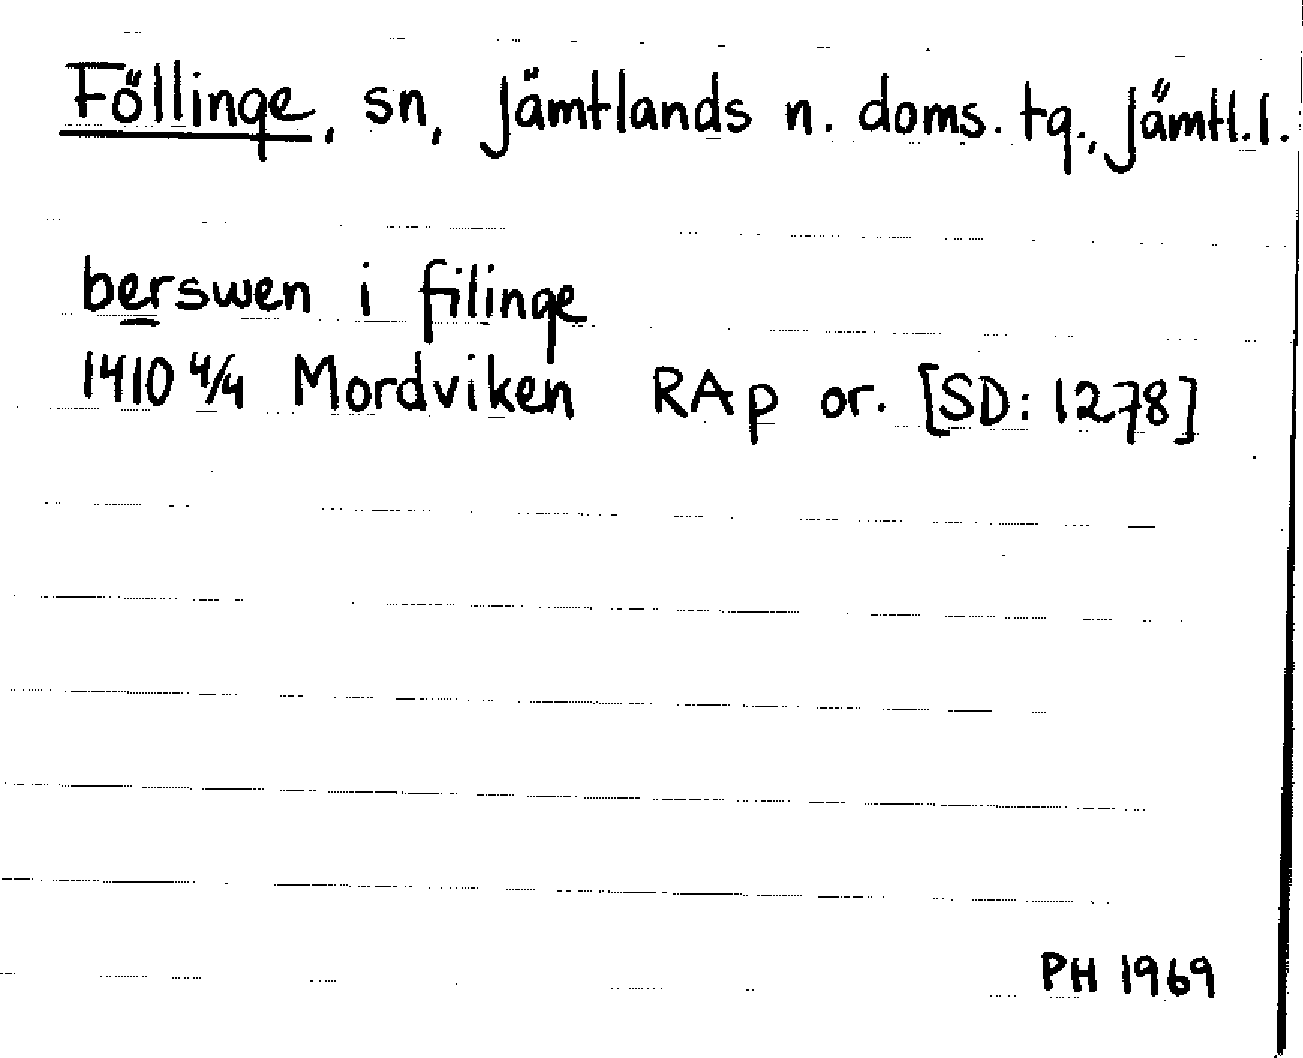 Föllinge, sn, Jämtlands n. doms. tg., Jämtl. l.
berswen i filinge
1410 4/4 Mordviken RAp or. [SD: 1278]
PH 1969